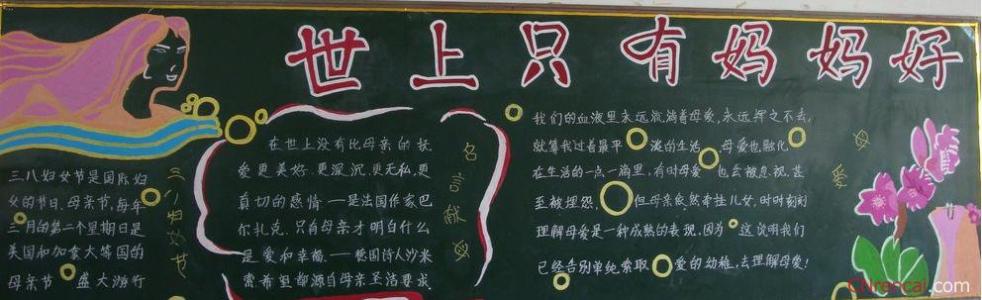 世上只有妈妈好
三八妇女节是国际妇
女的节日、母亲节,每年
三月的第二个星期日是
美国和加拿大等国的
母亲节 盛大游行
三八妇女节
在世上没有比母亲的抚
爱更美好,更深沉,更无私,更
真切的感情——是法国作家巴
尔扎克.只有母亲才明白什么
是爱和幸福.——德国诗人沙米
索希望都源自母亲圣洁要求
名言献母
我们的血液里永远流淌着母爱,永远挥之不去,
就算我过着最平 淡的生活 母爱也融化
在生活的一点一滴里,有时母爱 也会被忽视.甚
至被埋怨, 但母亲依然牵挂儿女,时时刻刻
理解母爱是一种成熟的表现,因为 这说明我们
已经告别单纯索取 爱的幼稚,去理解母爱!
母爱
CNrencai.com